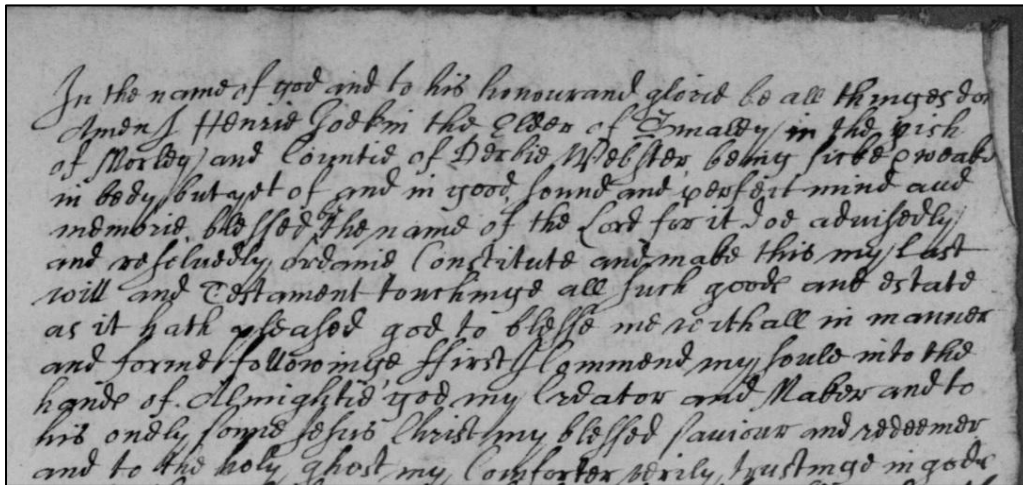 In the name of god and to his honour and glorie be all thinges don
Amen I Henrie Goekin the Elder of Smaley in the pish
of Morley and Countie of Derbie Webster being sicke & weake
in body but yet of and in good sound and perfect mind and
memorie blessed be the name of the Lord for it doe advisedly
and resolvedly ordaine Constitute and make this my last
will and Testament touchinge all such goods and estate
as it hath pleased god to blesse me withall in manner
and forme followinge ffirst I Commend my soule into the
hands of Almightie god my Creator and Maker and to
his onely sonne Jesus Christ my blessed saviour and redeemer
and to the holy ghost my Comforter verily trustinge in gods